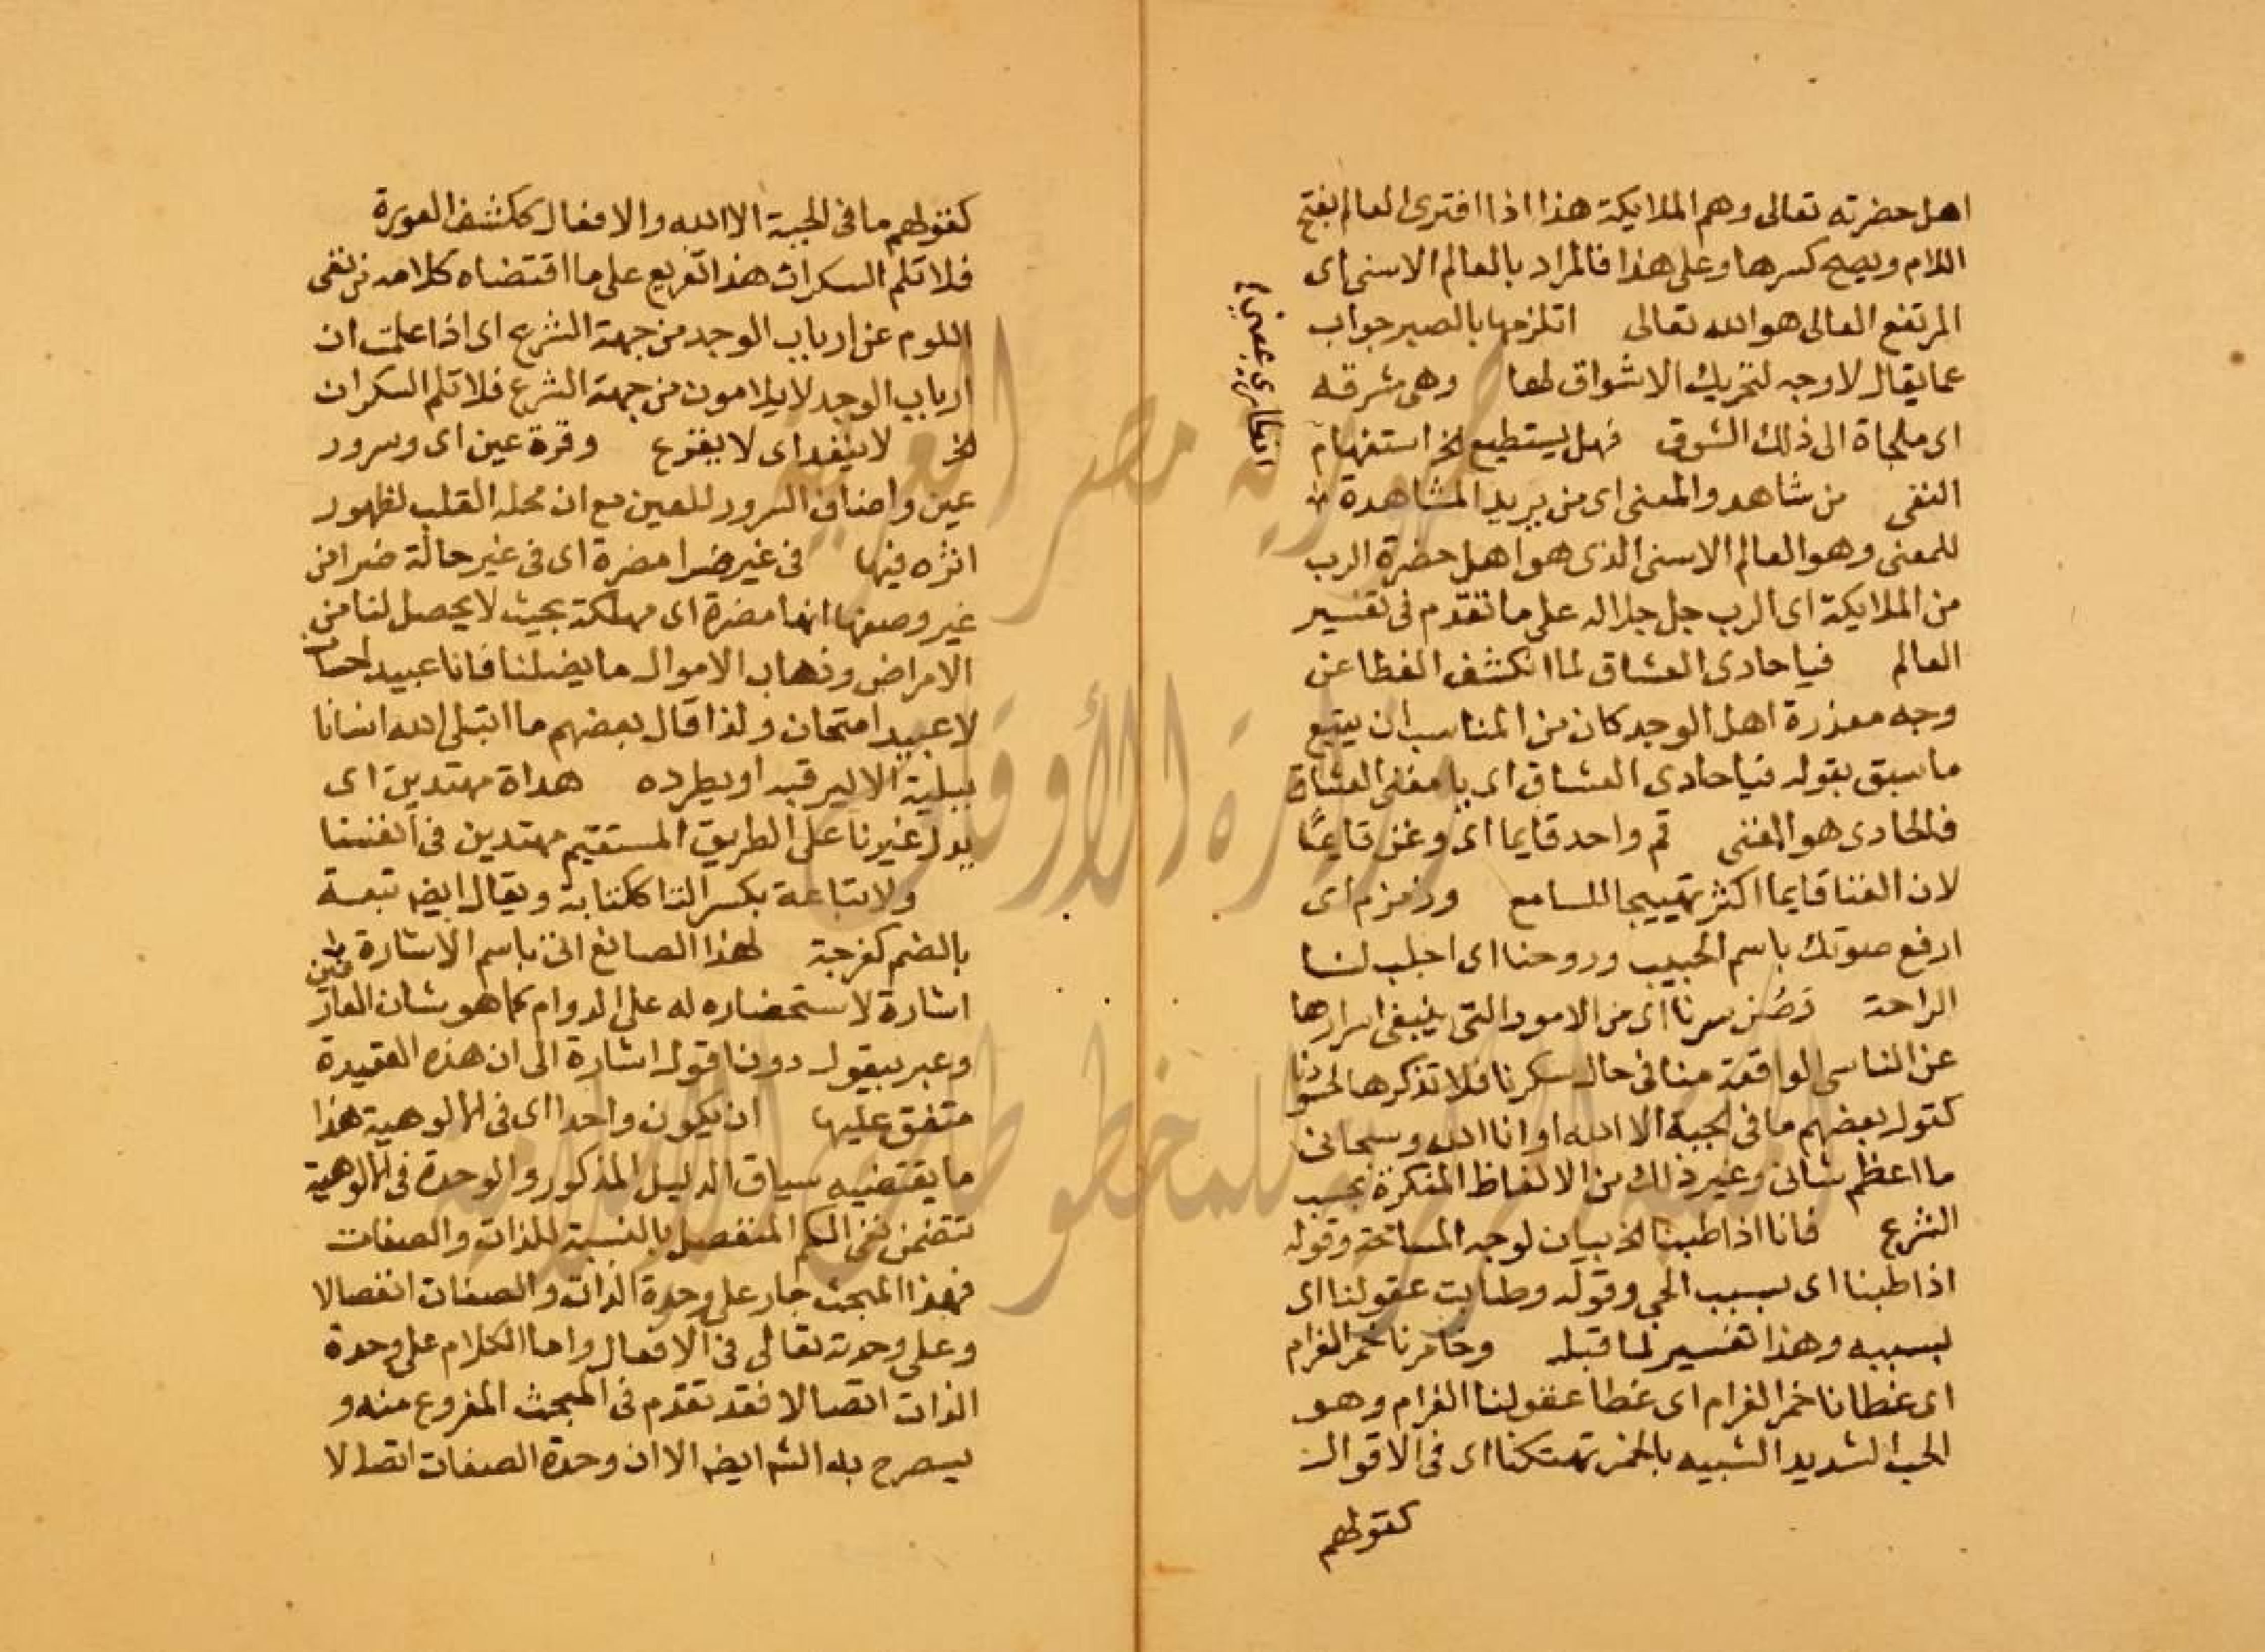 اهل حضرته تعالى وهم الملايكة هذا اذا اقترى العالم بفتح
اللام ويصح كسرها وعلى هذا فالمراد بالعالم الاسنى اى
المرتفع العالى هو الله تعالى اتلزمها بالصبر جواب
عما يقال لا وجه لتحريك الاشواق لها وهى مشرقه
اى ملجاة الى ذلك الشوق فهل يستطيع الخ استفهام
النفى من شاهد والمعنى اى من يريد المشاهدة
للمعنى وهو العالم الاسنى الذى هو اهل حضرة الرب
من الملايكة اى الرب جل جلاله على ما تقدم فى تفسير
العالم فيا حادى العشاق لما انكشف الغطا عن
وجه معذرة اهل الوجد كان من المناسب ان يتبع
ما سبق بقوله فيا حادى العشاق اى يا مغنى العشاق
فالحادى هو المغنى قم واحد قايما اى وغن قايمًا
لان الغنا قايما اكثر تهييجا للسامع وزمزم اى
ارفع صوتك باسم الحبيب وروحنا اى اجلب لنا
الراحة وصُن سرنا اى من الامور التى ينبغى اسرارها
عن الناس الواقعة منا فى حال سكرنا فلا تذكرها لحسودنا
كقول بعضهم ما فى الجبة الا الله او انا الله وسبحانى
ما اعظم شانى وغير ذلك من الالفاظ المنكرة بحسب
الشرع فانا اذا طبنا الخ بيان لوجه المسامحة وقوله
اذا طبنا اى بسبب الحب وقوله وطابت عقولنا اى
بسببه وهذا تفسير لما قبله وخامرنا خمر الغرام
اى غطانا خمر الغرام اى غطا عقولنا الغرام وهو
الحب الشديد الشبيه بالخمر تهتكنا اى فى الاقوال
كقولهم
كقولهم ما فى الجبة الا الله والافعال ككشف العورة
فلا تلم السكران هذا تفريع على ما اقتضاه كلامه من نفى
اللوم عن ارباب الوجد من جهة الشرع اى اذا علمت ان
ارباب الوجد لا يلامون من جهة الشرع فلا تلم السكران
الخ لا ينفد اى لا يفرغ وقرة عين اى وسرور
عين واضاف السرور للعين مع ان محله القلب لظهور
اثره فيها فى غير ضرا مضرة اى فى غير حالة ضرا من
غير وصفها انها مضرة اى مهلكة بحيث لا يحصل لنا من
الامراض وذهاب الاموال ما يضلنا فانا عبيد احسان
لا عبيد امتحان ولذا قال بعضهم ما ابتلى الله انسانا
ببلية الا ليرقبه او يطرده هداة مهتدين اى
يدل غيرنا على الطريق المستقيم مهتدين فى انفسنا
ولا تباعة بكسر التا ككتابة ويقال ايضا تبعة
بالضم كفرجة لهذا الصانع اتى باسم الاشارة
اشارة لاستحضاره له على الدوام كما هو شان العارفين
وعبر بيقول دون قوله اشارة الى ان هذه العقيدة
متفق عليها ان يكون واحدا اى فى الالوهية هذا
ما يقتضيه سياق الدليل المذكور والوحدة فى الالوهية
تتضمن نفى الكم المنفصل بالنسبة للذات والصفات
فهذا المبحث جار على وحدة الذات والصفات انفصالا
وعلى وحدته تعالى فى الافعال واما الكلام على وحدة
الذات اتصالا فقد تقدم فى المبحث المفروع منه و
يسصرح به الشم ايضا الا ان وحدة الصفات اتصالا
جمهورية مصر العربية
وزارة الأوقاف